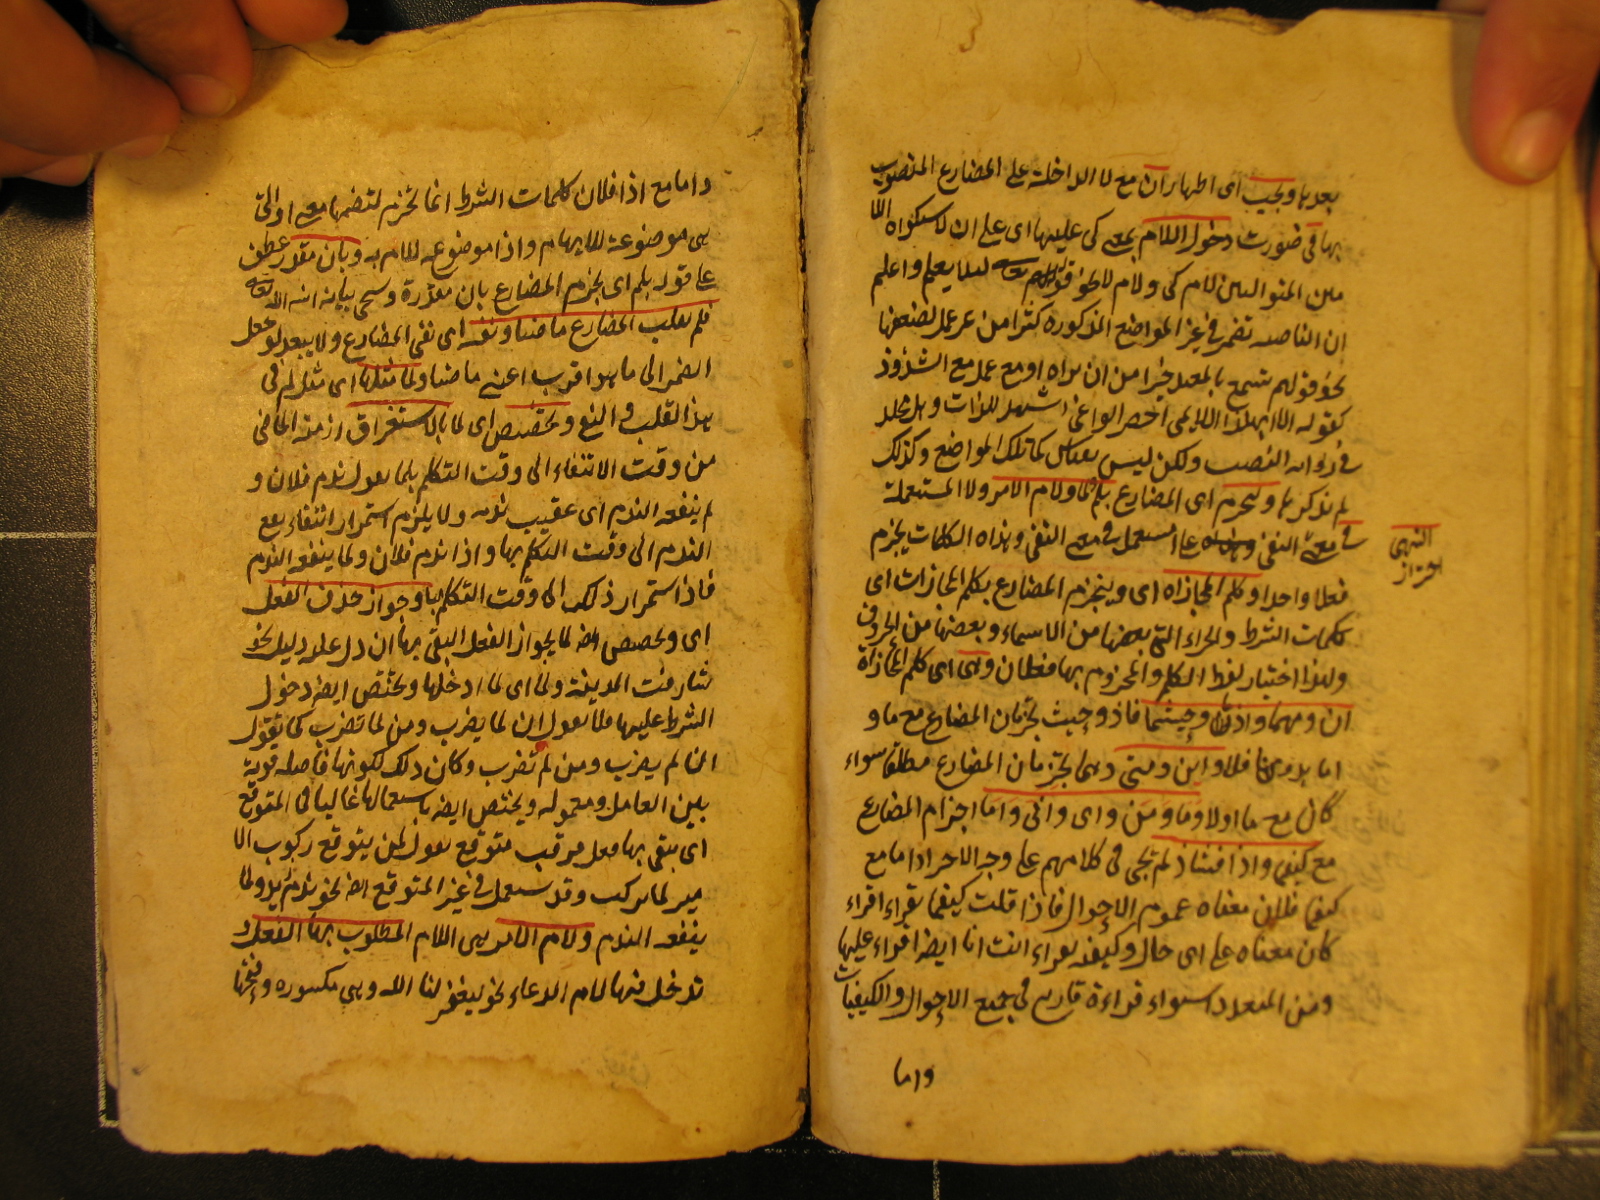 بعدها ويجب اى اظهار ان مع لا الداخلة على المضارع المنصوب
بها فى صورت دخول اللام بمعنى كى عليها اى على ان لاستكراه اللا
مين المتواليين لام كى ولام لا نحو قوله تعالى لئلا يعلم واعلم
ان الناصبه تضمر فى غير المواضع المذكوره كثيرا من غير عمل لضعفها
نحو قولهم تسمع بالمعيدى خيرا من ان تراه او مع عمل مع الشذوذ
كقوله الا ايهذا اللائمى احضر الوغى اشهد اللذات وهل مخلد
فى رواية النصب ولكن ليس بقياس كما تلك المواضع وكذلك
لم نذكرها وينجزم اى المضارع بلم ولما ولام الامر ولا المستعملة
فى معنى النهى المستعمل فى معنى النفى وهذه الكلمات يجزم
فعلا واحدا وكلم المجازاة اى وينجزم المضارع بكلم المجازات اى
كلمات الشرط والجزاء التى بعضها من الاسماء وبعضها من الحروف
ولهذا اختيار لفظ الكلم والمجزوم بها فعلان وهى اى كلم المجازاة
ان ومهما واذما وحيثما فاذ وحيث تجزمان المضارع مع ما و
اما بدونها فلا واين ومتى وهما تجزمان المضارع مطلقا سواء
كان مع ما اولا وما ومن واى وانى واما انجزام المضارع
مع كيفما واذا فشاذ لم تجئ فى كلامهم على وجه الاطراد اما مع
كيفما فلان معناه عموم الاحوال فاذا قلت كيفما تقراء اقراء
كان معناه على اى حال وكيفية تقراء انت انا ايضا اقراء عليها
ومن المتعذر استواء قراءة قارئين فى جميع الاحوال والكيفيات
واما
النهى
احتراز
واما مع اذا فلان كلمات الشرط انما تجزم لتضمنها معنى ان والتى
هى موضوعة للابهام واذا موضوعه للامر به وبان مقدرة عطف
على قوله بلم اى ينجزم المضارع بان مقدرة وسيجى بيانه انشاء الله تعالى
فلم لقلب المضارع ماضيا ونفيه اى نفى المضارع ولا يبعد لو جعل
الضمير الى ما هو اقرب اعنى ماضيا ولما مثلها اى مثل لم فى
هذا القلب والنفى وتختص اى لما بالاستغراق ازمنة الماضى
من وقت الانتفاء الى وقت التكلم بلما تقول ندم فلان و
لم ينفعه الندم اى عقيب ندمه ولا يلزم استمرار انتفاء نفع
الندم الى وقت التكلم بها واذا ندم فلان ولما ينفعه الندم
فاذا استمرار ذلك الى وقت التكلم بها وجواز حذف الفعل
اى وتختص ايضا لما بجواز الفعل المنفى بها ان دل عليه دليل نحو
شارفت المدينة ولما اى لما ادخلها وتختص ايضا دخول
الشرط عليها فلا تقول ان لما يضرب ومن لما تضرب كما تقول
ان لم يضرب ومن لم تضرب وكان ذلك لكونها فاصله قوية
بين العامل ومعموله ويختص ايضا باستعمالها غالبا فى المتوقع
اى ينفى بها فعل مرقب متوقع تقول لمن يتوقع ركوب الا
مير لما يركب وقد تستعمل فى غير المتوقع ايضا نحو ندم زيد ولما
ينفعه الندم ولام الامر هى اللام المطلوب بها الفعل و
تدخل فيها لام الدعاء نحو ليغفر لنا الله وهى مكسورة وفتحها